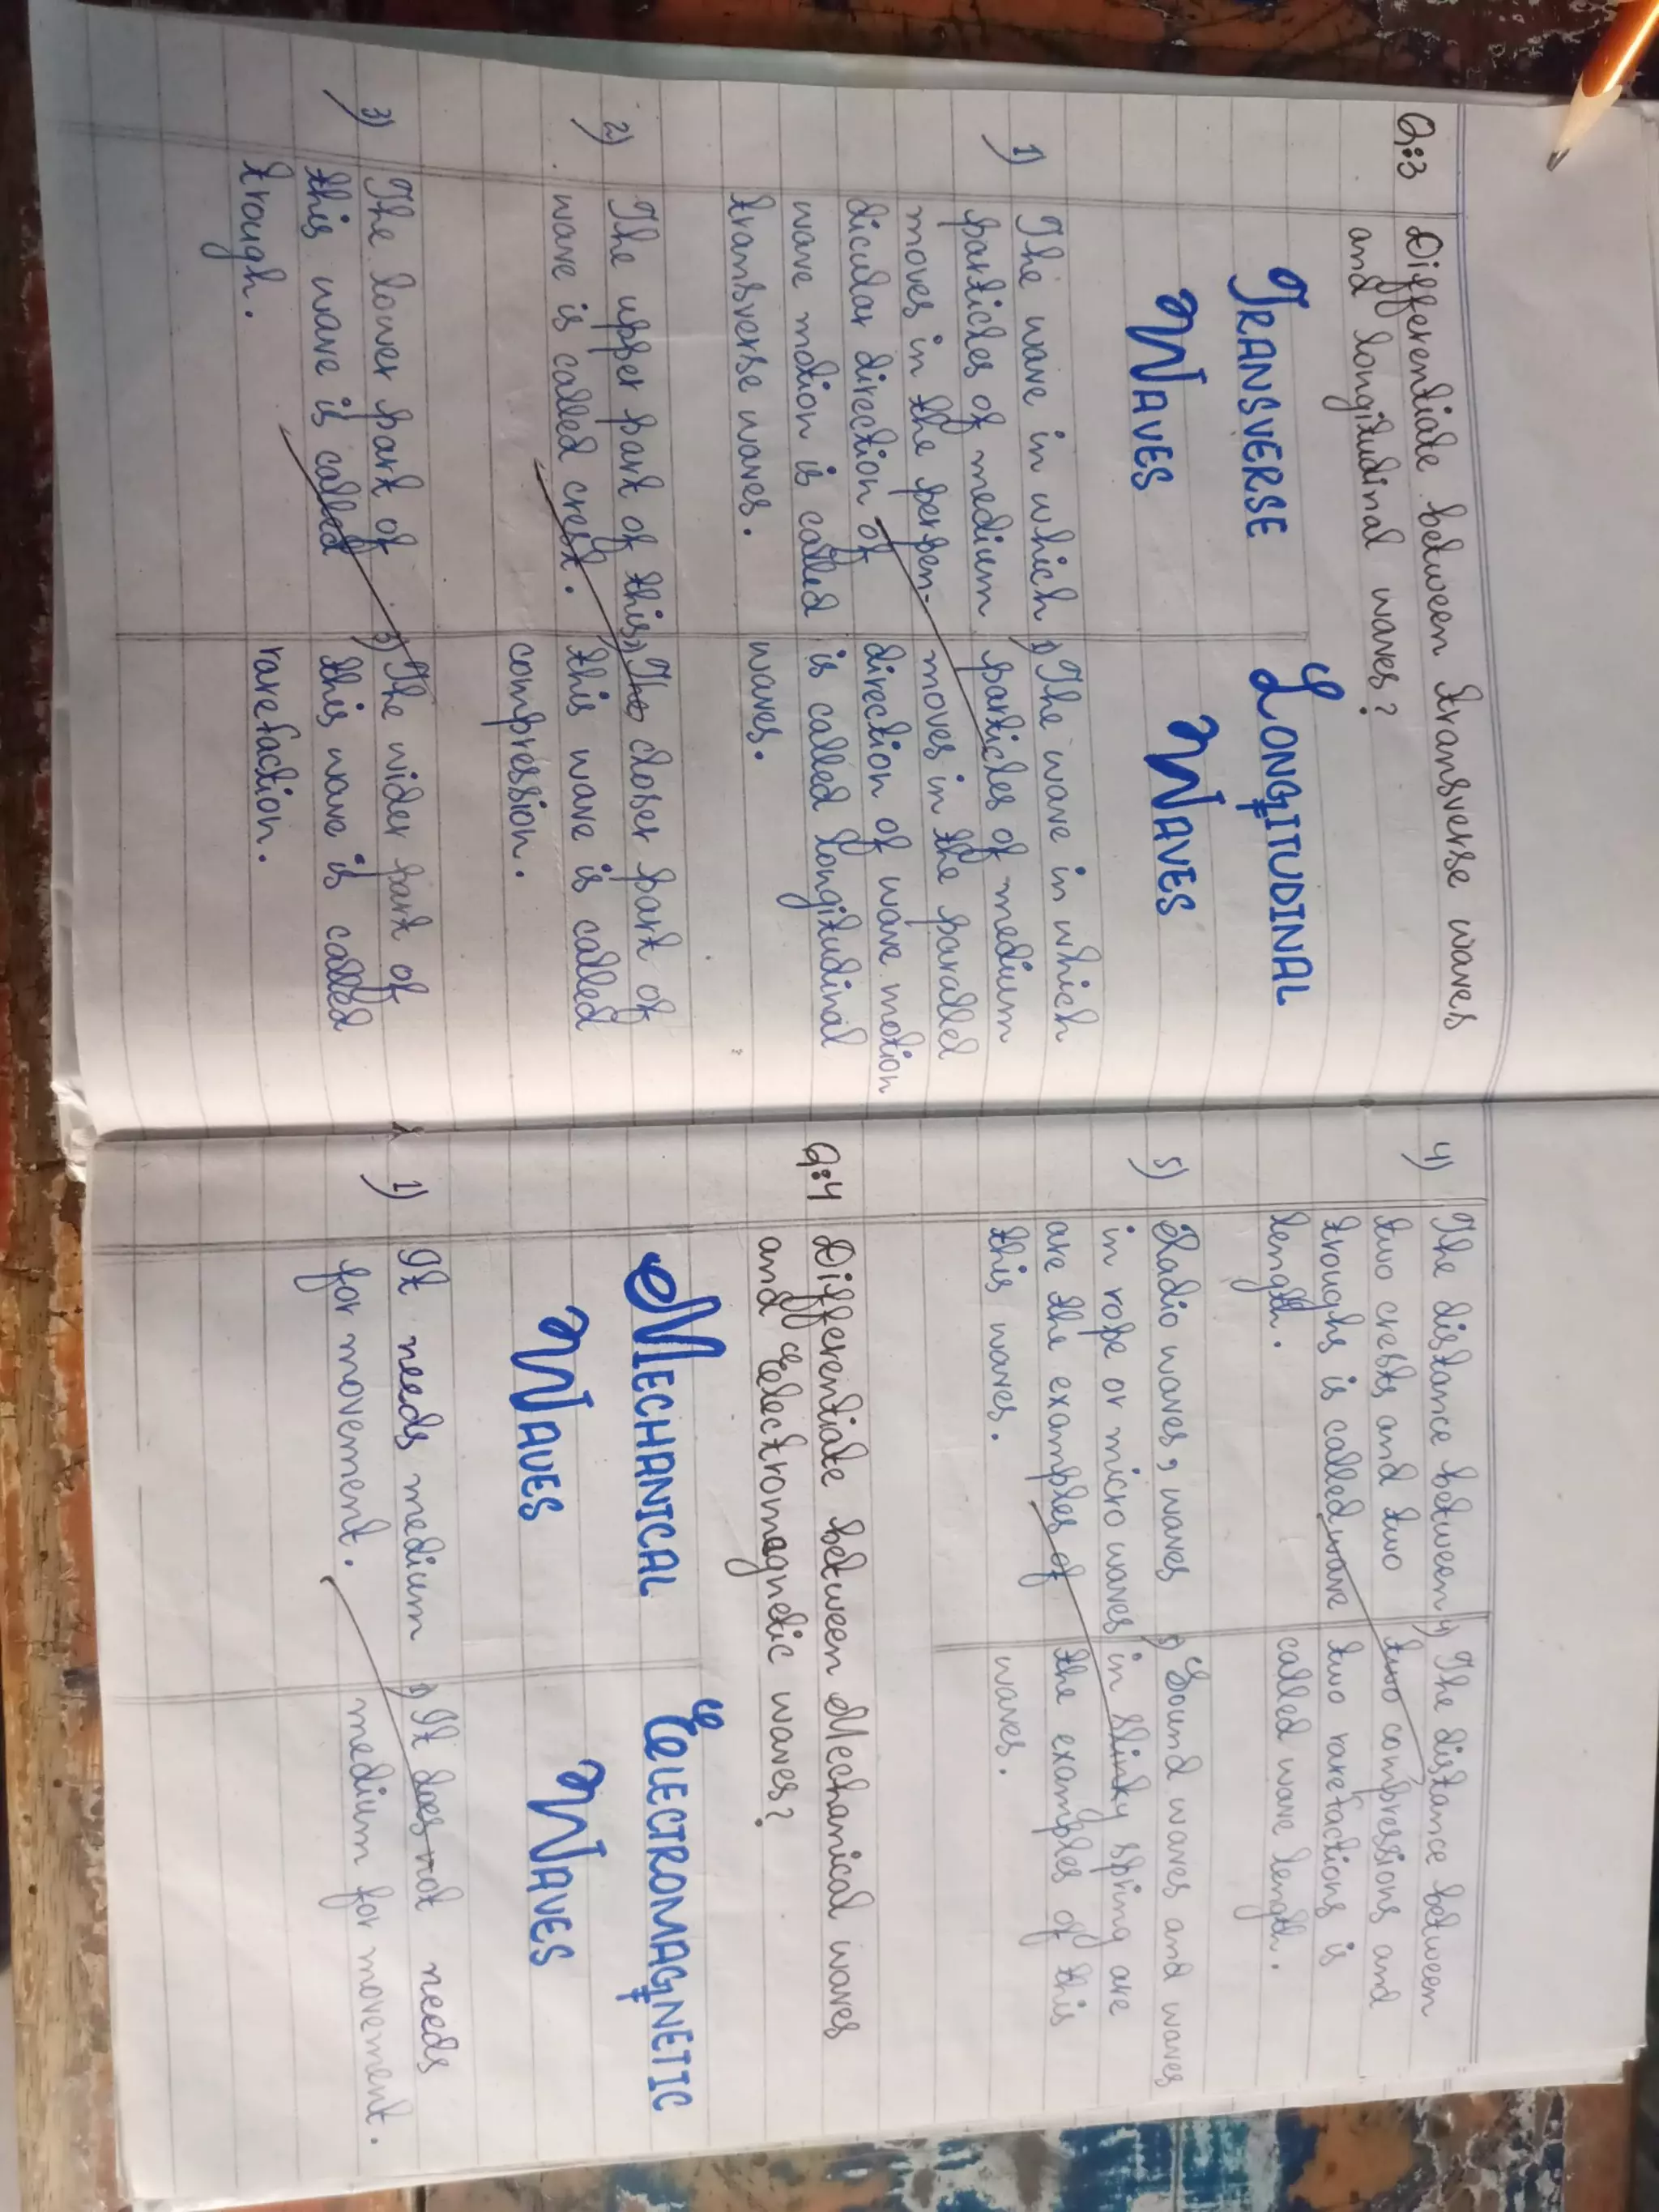 Q:3 Differentiate between transverse waves
and longitudinal waves?
TRANSVERSE
WAVES
1) The wave in which
particles of medium
moves in the perpen-
dicular direction of
wave motion is called
transverse waves.
2) The upper part of this
wave is called crest.
3) The lower part of
this wave is called
trough.
LONGITUDINAL
WAVES
1) The wave in which
particles of medium
moves in the parallel
direction of wave motion
is called longitudinal
waves.
2) The closer part of
this wave is called
compression.
3) The wider part of
this wave is called
rarefaction.
4) The distance between
two crests and two
troughs is called wave
length.
5) Radio waves, waves
in rope or micro waves
are the examples of
this waves.
4) The distance between
two compressions and
two rarefactions is
called wave length.
5) Sound waves and waves
in slinky spring are
the examples of this
waves.
Q:4 Differentiate between Mechanical waves
and Electromagnetic waves?
MECHANICAL
WAVES
1) It needs medium
for movement.
ELECTROMAGNETIC
WAVES
1) It does not needs
medium for movement.